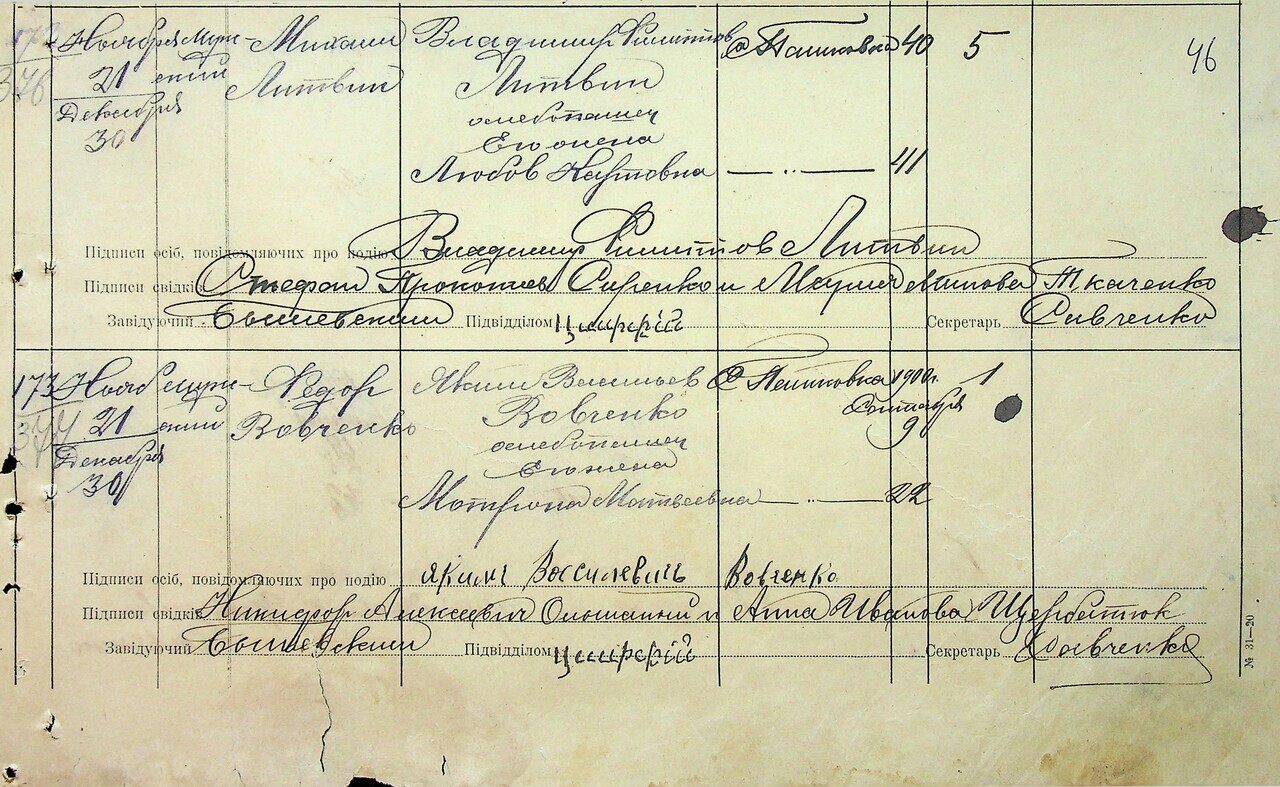 172 Ноября Муж- Михаил Владимир Филиппов с Пашковка 40 5 46
376 21 ский Литвин Литвин
Декабря хлебопашец
30 Его жена
Любов Карповна — ·· — 41
Підписи осіб, повідомляючих про подію Владимир Филиппов Литвин
Підписи свідків Стефан Прокопиев Сиренко и Ткаченко
Завідуючий Підвідділом Секретарь Савченко
173 Нояб Муж- Федор Яким Васильев с Пашковка 1900г. 1
377 21 ский Вовченко Вовченко Сентября
Декабря хлебопашец 9
30 Его жена
Мотрона Матвеевна — ·· — 22
Підписи осіб, повідомляючих про подію Яким Василевичь Вовченко
Підписи свідків Никифор Алексеевич и Анна Иванова Щербатюк
Завідуючий Підвідділом Секретарь Савченко
№ 31—20